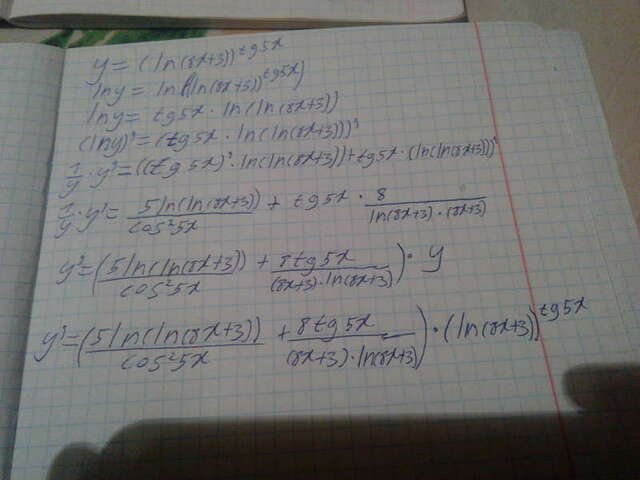 y = (ln(8x+3))^tg5x
lny = ln((ln(8x+3))^tg5x)
lny = tg5x · ln(ln(8x+3))
(lny)' = (tg5x · ln(ln(8x+3)))'
1/y · y' = ((tg5x)' · ln(ln(8x+3)) + tg5x · (ln(ln(8x+3)))'
1/y · y' = 5ln(ln(8x+3))/cos²5x + tg5x · 8/ln(8x+3)·(8x+3)
y' = (5ln(ln(8x+3))/cos²5x + 8tg5x/(8x+3)·ln(8x+3)) · y
y' = (5ln(ln(8x+3))/cos²5x + 8tg5x/(8x+3)·ln(8x+3)) · (ln(8x+3))^tg5x